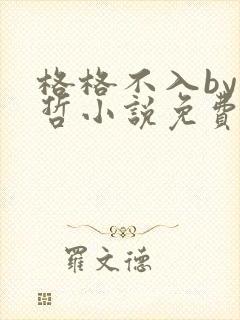 格格不入by
哲小說免費
羅文德